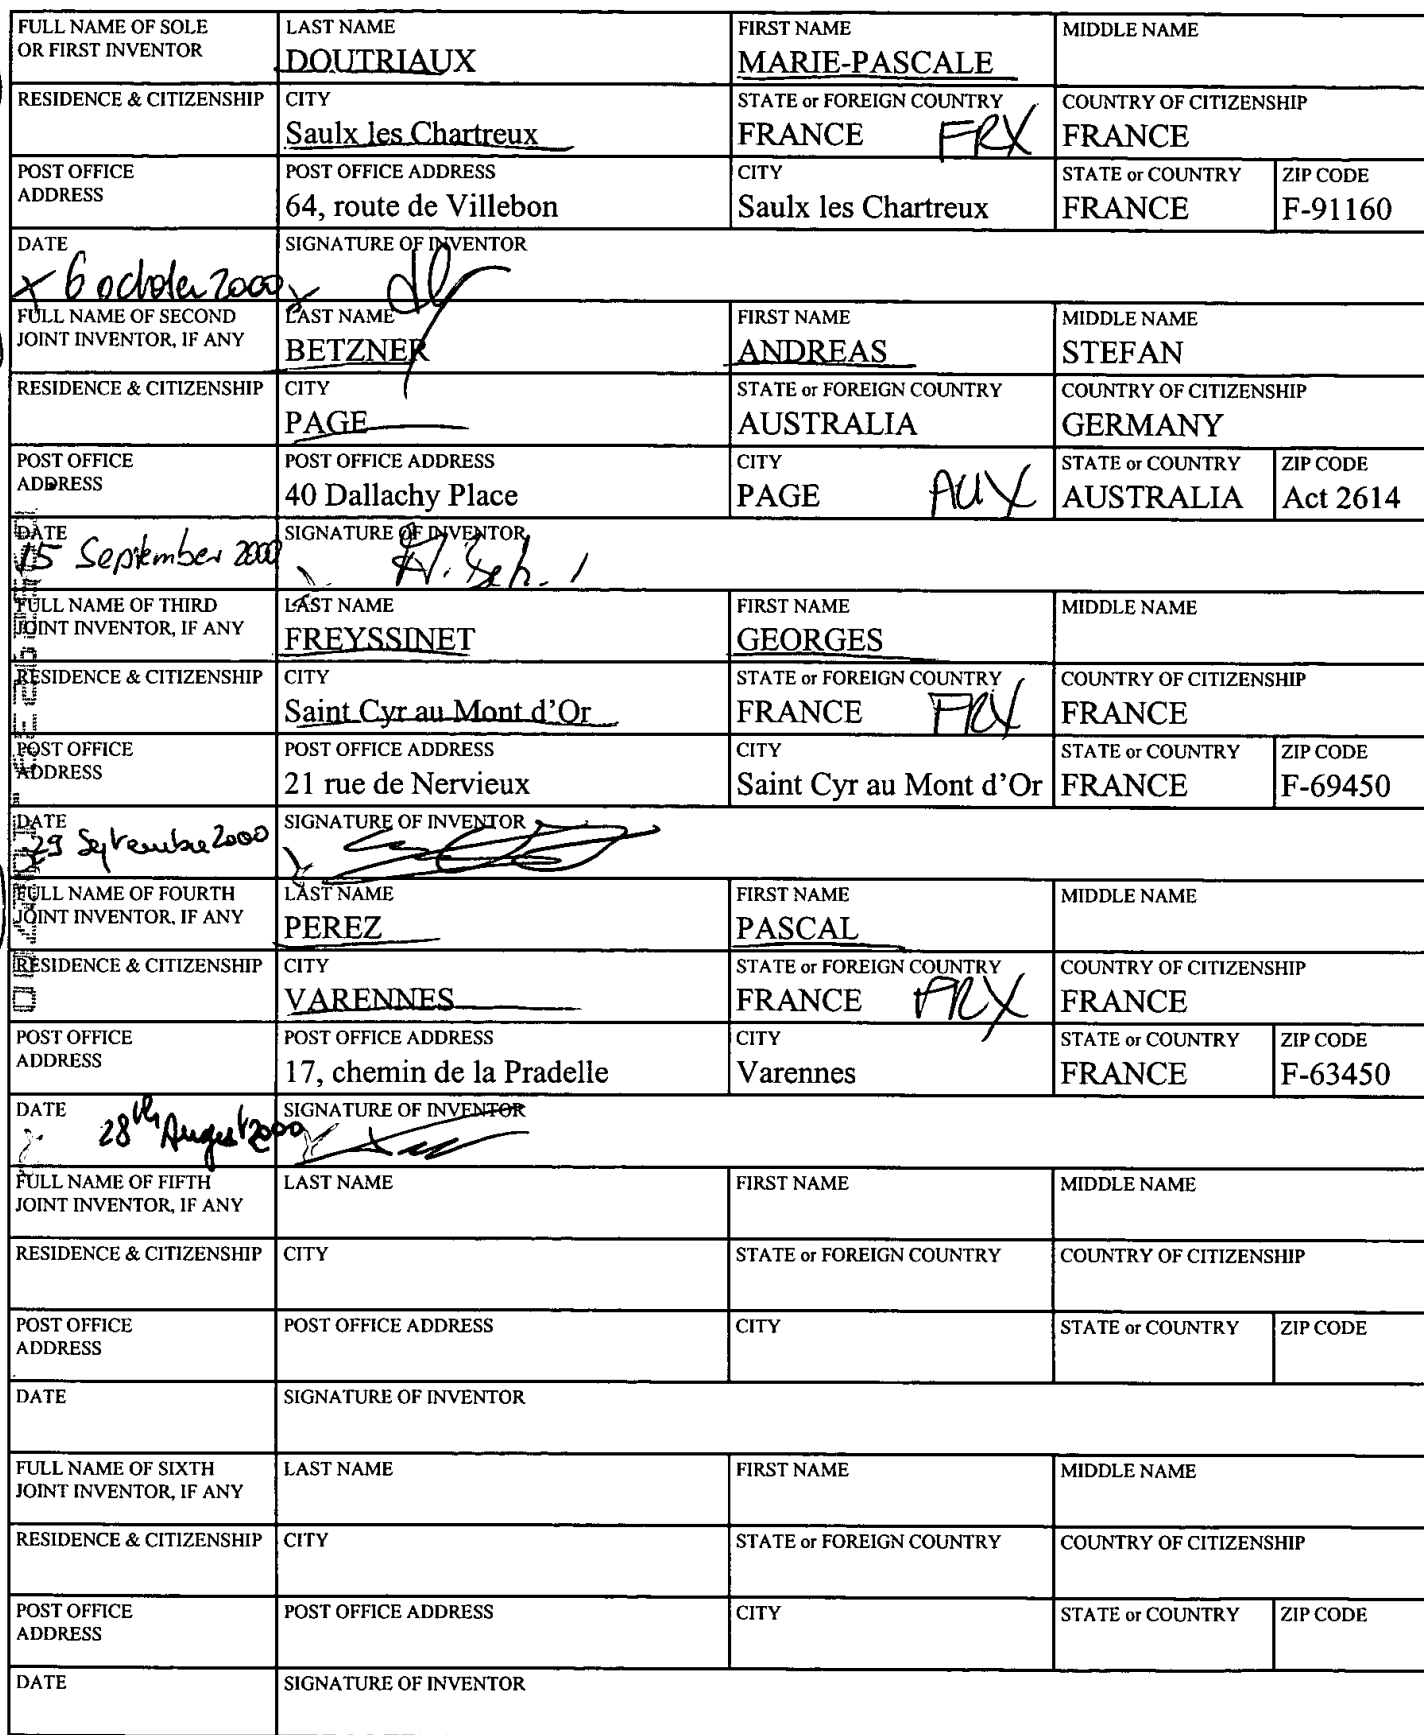 FULL NAME OF SOLE OR FIRST INVENTOR LAST NAME DOUTRIAUX FIRST NAME MARIE-PASCALE MIDDLE NAME
RESIDENCE & CITIZENSHIP CITY Saulx les Chartreux STATE or FOREIGN COUNTRY FRANCE FRX COUNTRY OF CITIZENSHIP FRANCE
POST OFFICE ADDRESS POST OFFICE ADDRESS 64, route de Villebon CITY Saulx les Chartreux STATE or COUNTRY FRANCE ZIP CODE F-91160
DATE x 6 october 2000 SIGNATURE OF INVENTOR x
FULL NAME OF SECOND JOINT INVENTOR, IF ANY LAST NAME BETZNER FIRST NAME ANDREAS MIDDLE NAME STEFAN
RESIDENCE & CITIZENSHIP CITY PAGE STATE or FOREIGN COUNTRY AUSTRALIA COUNTRY OF CITIZENSHIP GERMANY
POST OFFICE ADDRESS POST OFFICE ADDRESS 40 Dallachy Place CITY PAGE AUX STATE or COUNTRY AUSTRALIA ZIP CODE Act 2614
DATE 15 September 2000 SIGNATURE OF INVENTOR
FULL NAME OF THIRD JOINT INVENTOR, IF ANY LAST NAME FREYSSINET FIRST NAME GEORGES MIDDLE NAME
RESIDENCE & CITIZENSHIP CITY Saint Cyr au Mont d'Or STATE or FOREIGN COUNTRY FRANCE FRX COUNTRY OF CITIZENSHIP FRANCE
POST OFFICE ADDRESS POST OFFICE ADDRESS 21 rue de Nervieux CITY Saint Cyr au Mont d'Or STATE or COUNTRY FRANCE ZIP CODE F-69450
DATE 29 Septembre 2000 SIGNATURE OF INVENTOR
FULL NAME OF FOURTH JOINT INVENTOR, IF ANY LAST NAME PEREZ FIRST NAME PASCAL MIDDLE NAME
RESIDENCE & CITIZENSHIP CITY VARENNES STATE or FOREIGN COUNTRY FRANCE FRX COUNTRY OF CITIZENSHIP FRANCE
POST OFFICE ADDRESS POST OFFICE ADDRESS 17, chemin de la Pradelle CITY Varennes STATE or COUNTRY FRANCE ZIP CODE F-63450
DATE 28th August 2000 SIGNATURE OF INVENTOR
FULL NAME OF FIFTH JOINT INVENTOR, IF ANY LAST NAME FIRST NAME MIDDLE NAME
RESIDENCE & CITIZENSHIP CITY STATE or FOREIGN COUNTRY COUNTRY OF CITIZENSHIP
POST OFFICE ADDRESS POST OFFICE ADDRESS CITY STATE or COUNTRY ZIP CODE
DATE SIGNATURE OF INVENTOR
FULL NAME OF SIXTH JOINT INVENTOR, IF ANY LAST NAME FIRST NAME MIDDLE NAME
RESIDENCE & CITIZENSHIP CITY STATE or FOREIGN COUNTRY COUNTRY OF CITIZENSHIP
POST OFFICE ADDRESS POST OFFICE ADDRESS CITY STATE or COUNTRY ZIP CODE
DATE SIGNATURE OF INVENTOR